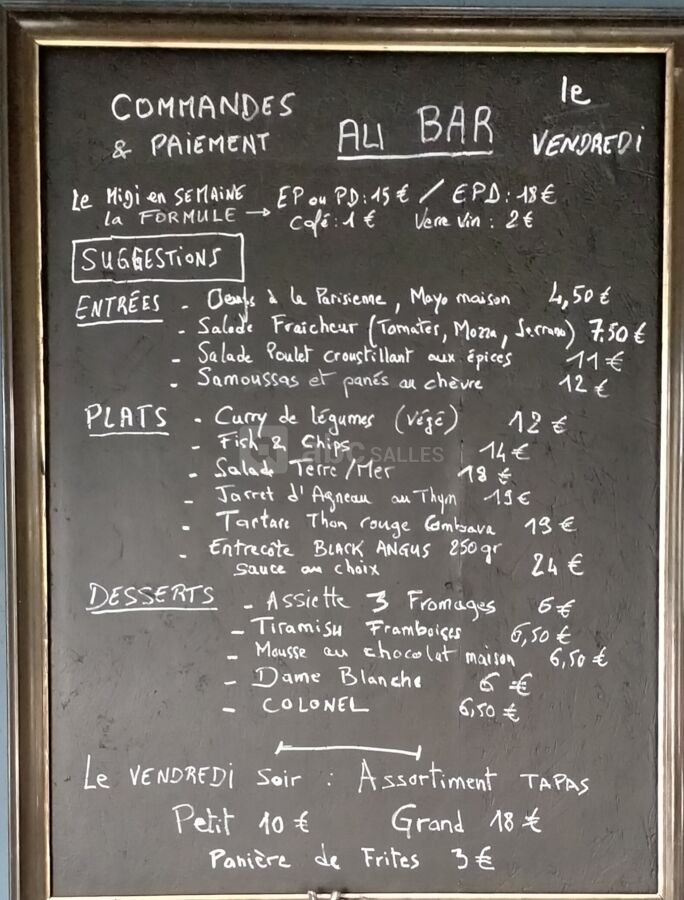 COMMANDES & PAIEMENT
AU BAR
le VENDREDI
Le Midi en SEMAINE
la FORMULE → EP ou PD : 15 € / EPD : 18 €
Café : 1 € Verre vin : 2 €
SUGGESTIONS
ENTRÉES - Oeufs à la Parisienne, Mayo maison 4,50 €
- Salade Fraicheur (Tomates, Mozza, Serrano) 7.50 €
- Salade Poulet croustillant aux épices 11 €
- Samoussas et panés au chèvre 12 €
PLATS - Curry de légumes (végé) 12 €
- Fish & Chips 14 €
- Salade Terre/Mer 18 €
- Jarret d'Agneau au Thym 19 €
- Tartare Thon rouge Combava 19 €
- Entrecôte BLACK ANGUS 250 gr
sauce au choix 24 €
DESSERTS - Assiette 3 Fromages 6 €
- Tiramisu Framboises 6,50 €
- Mousse au chocolat maison 6,50 €
- Dame Blanche 6 €
- COLONEL 6,50 €
Le VENDREDI soir : Assortiment TAPAS
Petit 10 € Grand 18 €
Panière de Frites 3 €
abc SALLES